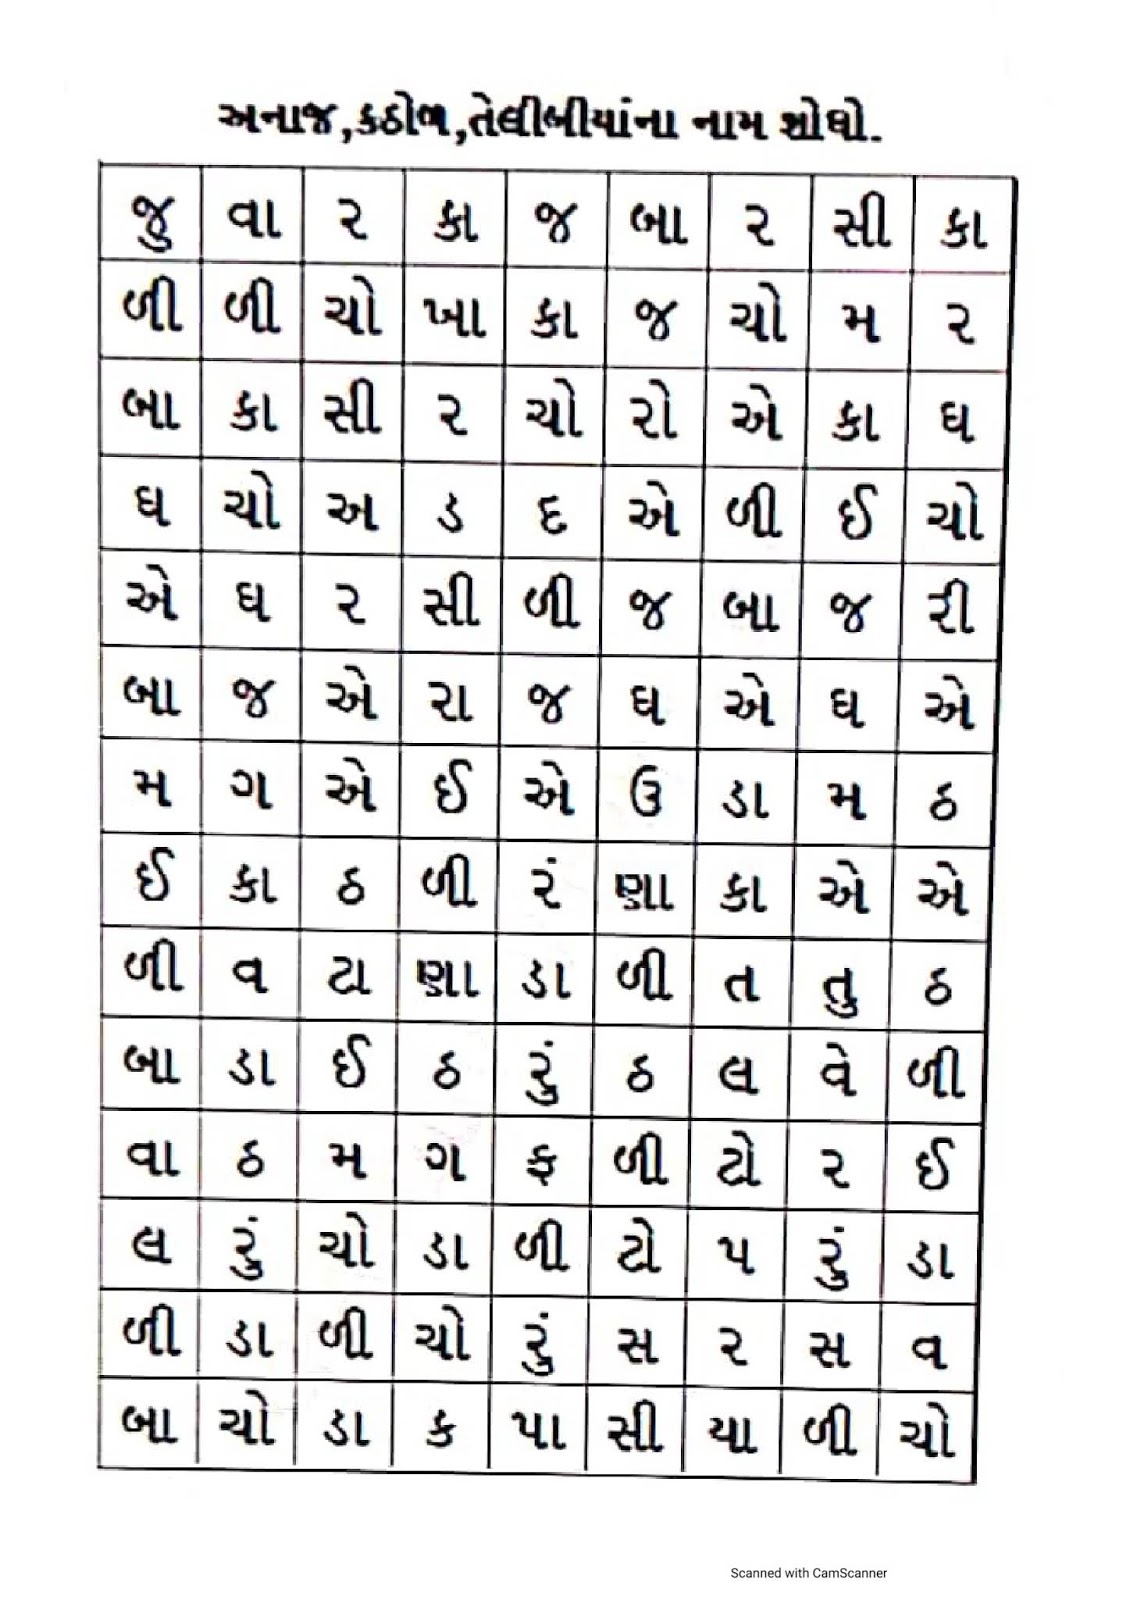 અનાજ,કઠોળ,તેલીબીયાંના નામ શોધો.
જુ વા ર કા જ બા ર સી કા
ળી ળી ચો ખા કા જ ચો મ ર
બા કા સી ર ચો રો એ કા ઘ
ઘ ચો અ ડ દ એ ળી ઈ ચો
એ ઘ ર સી ળી જ બા જ રી
બા જ એ રા જ ઘ એ ઘ એ
મ ગ એ ઈ એ ઉ ડા મ ઠ
ઈ કા ઠ ળી રં ણા કા એ એ
ળી વ ટા ણા ડા ળી ત તુ ઠ
બા ડા ઈ ઠ રું ઠ લ વે ળી
વા ઠ મ ગ ફ ળી ટો ર ઈ
લ રું ચો ડા ળી ટો પ રું ડા
ળી ડા ળી ચો રું સ ર સ વ
બા ચો ડા ક પા સી યા ળી ચો
Scanned with CamScanner